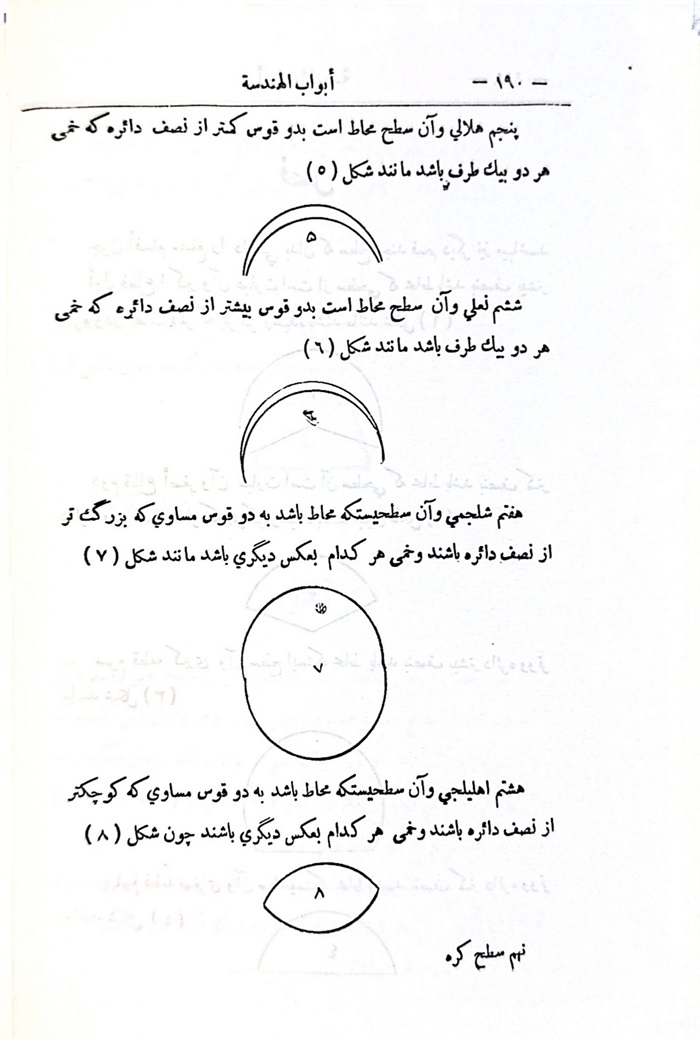 — ١٩٠ — أبواب الهندسة
پنجم هلالي وآن سطح محاط است بدو قوس كمتر از نصف دائره كه خمى
هر دو بيك طرف باشد مانند شكل (٥)
۵
ششم نعلي وآن سطح محاط است بدو قوس بيشتر از نصف دائره كه خمى
هر دو بيك طرف باشد مانند شكل (٦)
هفتم شلجمي وآن سطحيستكه محاط باشد به دو قوس مساوي كه بزرگ تر
از نصف دائره باشند وخمى هر كدام بعكس ديگري باشد مانند شكل (٧)
٧
هشتم اهليلجي وآن سطحيستكه محاط باشد به دو قوس مساوي كه كوچكتر
از نصف دائره باشند وخمى هر كدام بعكس ديگري باشند چون شكل (٨)
٨
نهم سطح كره